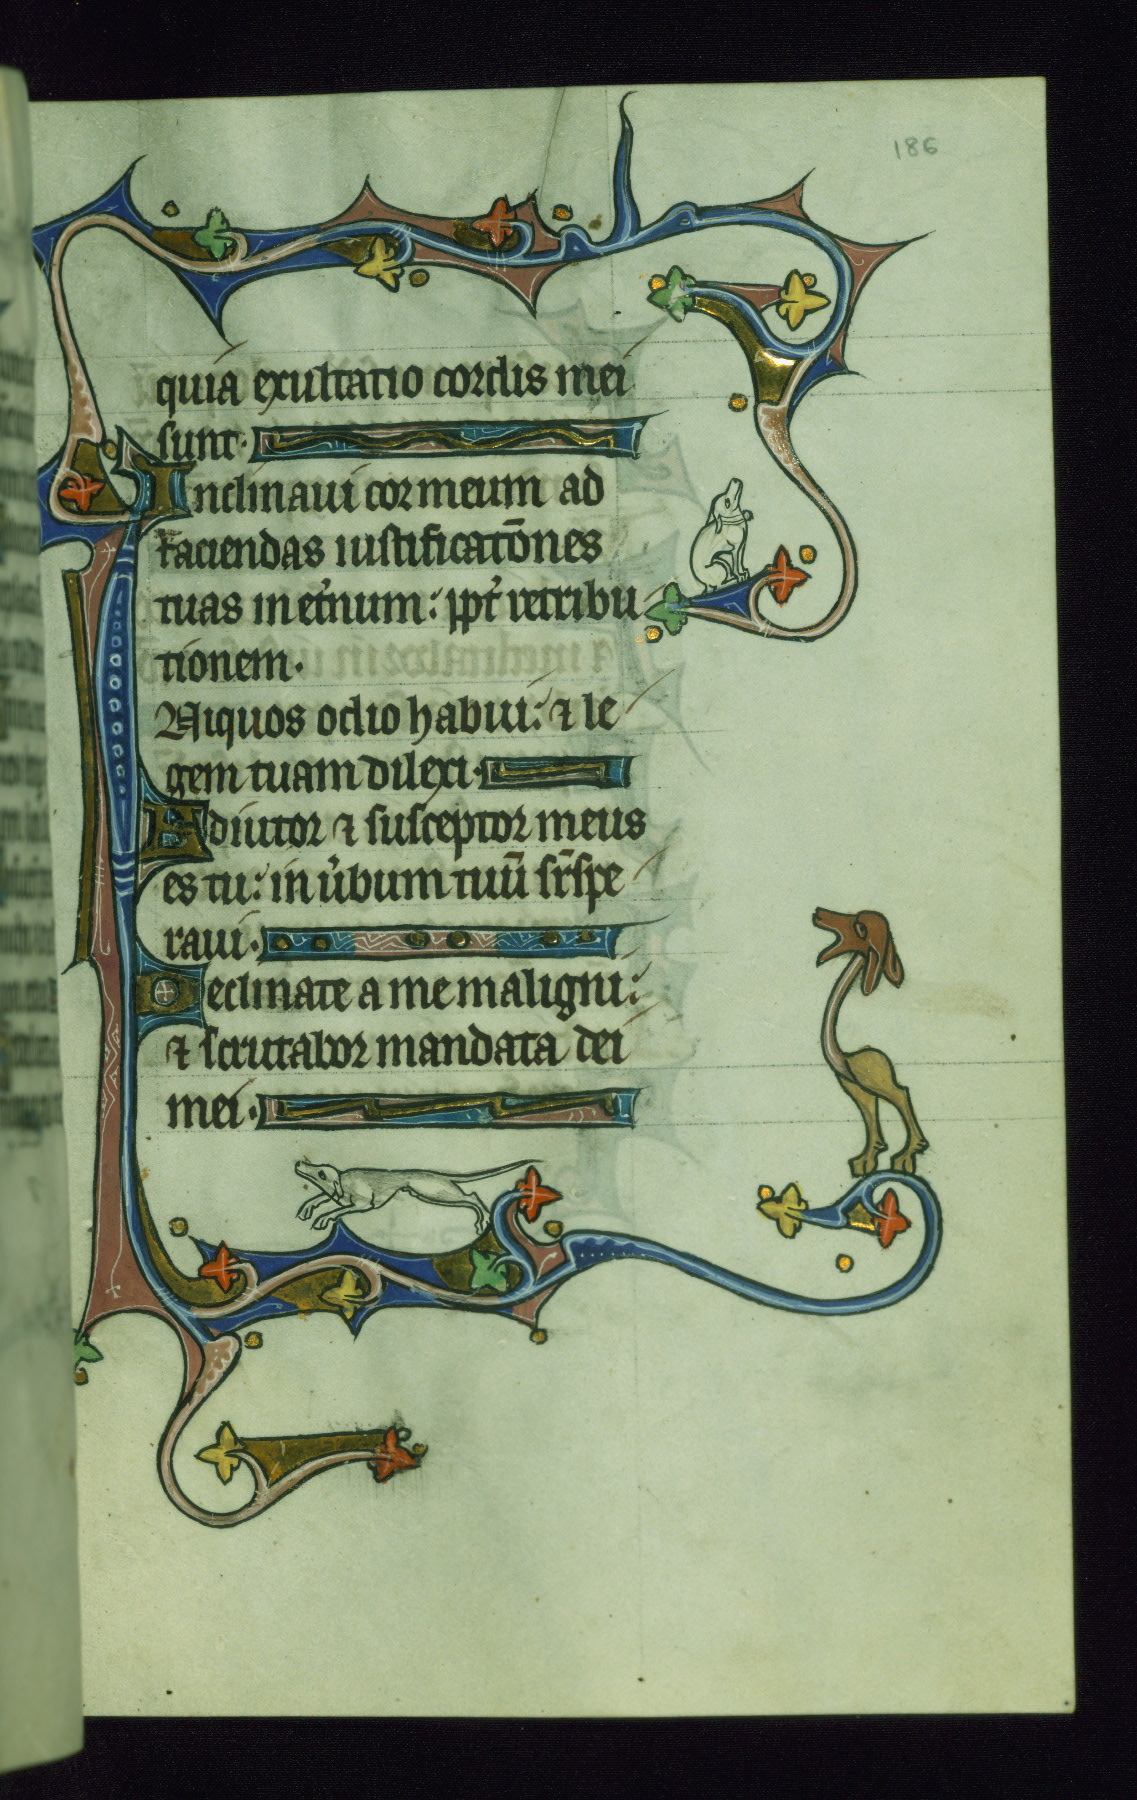 186
quia exultatio cordis mei
sunt.
Inclinaui cor meum ad
faciendas iustificatōnes
tuas in et̉num: ppt̉ retribu
tionem.
Niquos odio habui: ⁊ le
gem tuam dilexi.
Adiutor ⁊ susceptor meus
es tu: in ủbum tuū sr̄spe
raui.
Declinate a me maligni:
⁊ scrutabor mandata dei
mei.